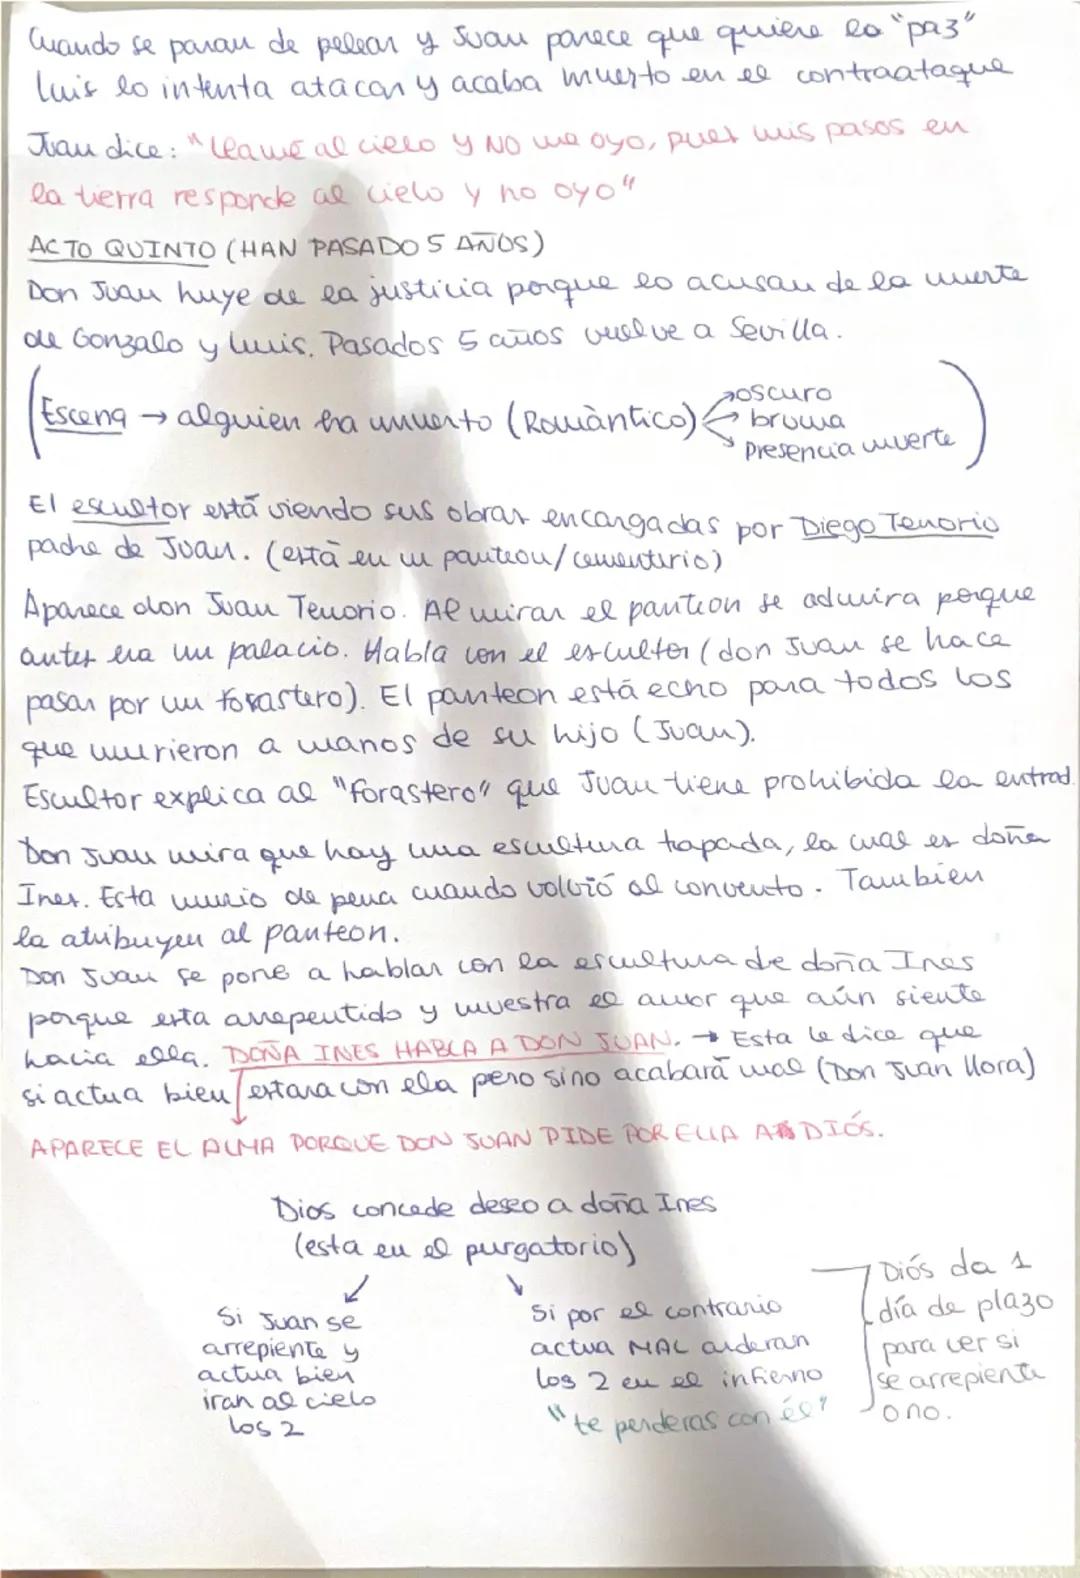 Cuando se paran de pelear y Juan parece que quiere la "paz"
Luis lo intenta atacar y acaba muerto en el contraataque
Juan dice: "Llamé al cielo y NO me oyo, pues mis pasos en
la tierra responde al cielo y no oyo"
ACTO QUINTO (HAN PASADO 5 AÑOS)
Don Juan huye de la justicia porque lo acusan de la muerte
de Gonzalo y Luis. Pasados 5 años vuelve a Sevilla.
Escena → alguien ha muerto (Romàntico)
→ oscuro
→ bruma
→ presencia muerte
El escultor está viendo sus obras encargadas por Diego Tenorio
padre de Juan. (está en un panteon/cementerio)
Aparece don Juan Tenorio. Al mirar el panteon se admira porque
antes era un palacio. Habla con el escultor (don Juan se hace
pasar por un forastero). El panteon está echo para todos los
que murieron a manos de su hijo (Juan).
Escultor explica al "forastero" que Juan tiene prohibida la entrad.
Don Juan mira que hay una escultura tapada, la cual es doña
Ines. Esta murio de pena cuando volvió al convento. Tambien
la atribuyen al panteon.
Don Juan se pone a hablar con la escultura de doña Ines
porque esta arrepentido y muestra el amor que aún siente
hacia ella. DOÑA INES HABLA A DON JUAN. → Esta le dice que
si actua bien estara con ela pero sino acabará mal (Don Juan llora)
APARECE EL ALMA PORQUE DON JUAN PIDE POR ELLA A DIÓS.
Dios concede deseo a doña Ines
(esta en el purgatorio)
Si Juan se
arrepiente y
actua bien
iran al cielo
los 2
Si por el contrario
actua MAL arderan
los 2 en el infierno
"te perderas con él"
Diós da 1
día de plazo
para ver si
se arrepiente
o no.